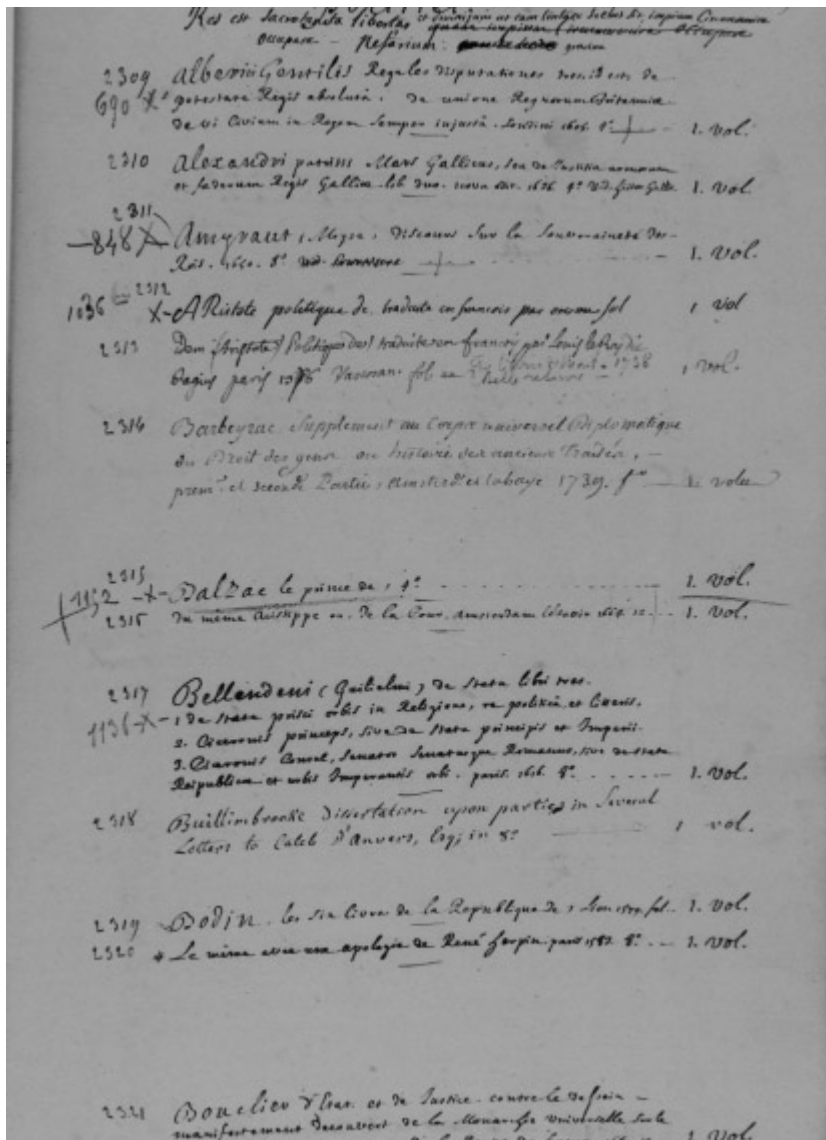 Res est Sacrosancta libertas et divini juris ut eam tentare scelus sit, impium Circumvenire
occupare - Nefarium.
2309 Alberici Gentilis Regales disputationes tres id est de
690 X potestate Regis absoluta. de unione Regnorum Britanniae
de vi Civium in Regem Semper injusta. Londini 1605. 4° 1. vol.
2310 Alexandri patricii Mars Gallicus, seu de Justitia armorum
et foederum Regis Galliae lib. duo. nova edit. 1636. 4° 1. vol
2311
848 X Amyraut, Moyse, discours sur la Souveraineté des
Rois. 1650. 8° 1. vol.
2312
1036 X ARistote politique de, traduite en francois par fol 1 vol
2313 Dem (Aristote) Politiques de traduites en francois par Louis le Roy dit
Regius paris 1576 Vascosan. fol 1738 1 vol.
2314 Barbeyrac Supplement au Corps universel Diplomatique
du Droit des gens ou histoire des anciens Traités, -
prem.e et seconde Partie, Amsterd. et la haye 1739. f° 1. volu
2315
1152 X Balzac le prince de, 4° 1. vol.
2316 du même Aristippe ou de la Cour, Amsterdam 12 1. vol.
2317 Bellendeni (Guilielmi) de Statu libri tres.
1136 X 1 de Statu prisci orbis in Religione, re politica, et litteris.
2. Ciceronis princeps, sive de Statu principis et Imperii.
3. Ciceronis Consul, Senator Senatusque Romanus, sive de Statu
Reipublicae et urbis Imperantis orbi. paris. 1616. 8° 1. vol.
2318 Bullimbrooke Dissertation upon parties in Several
Letters to Caleb D'anvers, Esq; in 8° 1 vol.
2319 Bodin les six livres de la Republique de, fol. 1. vol.
2320 * Le même avec une apologie de René herpin. paris 8° 1. vol.
2321 Bouclier d'Etat et de Justice contre le dessein
manifestement decouvert de la Monarchie universelle sous le
1. vol.